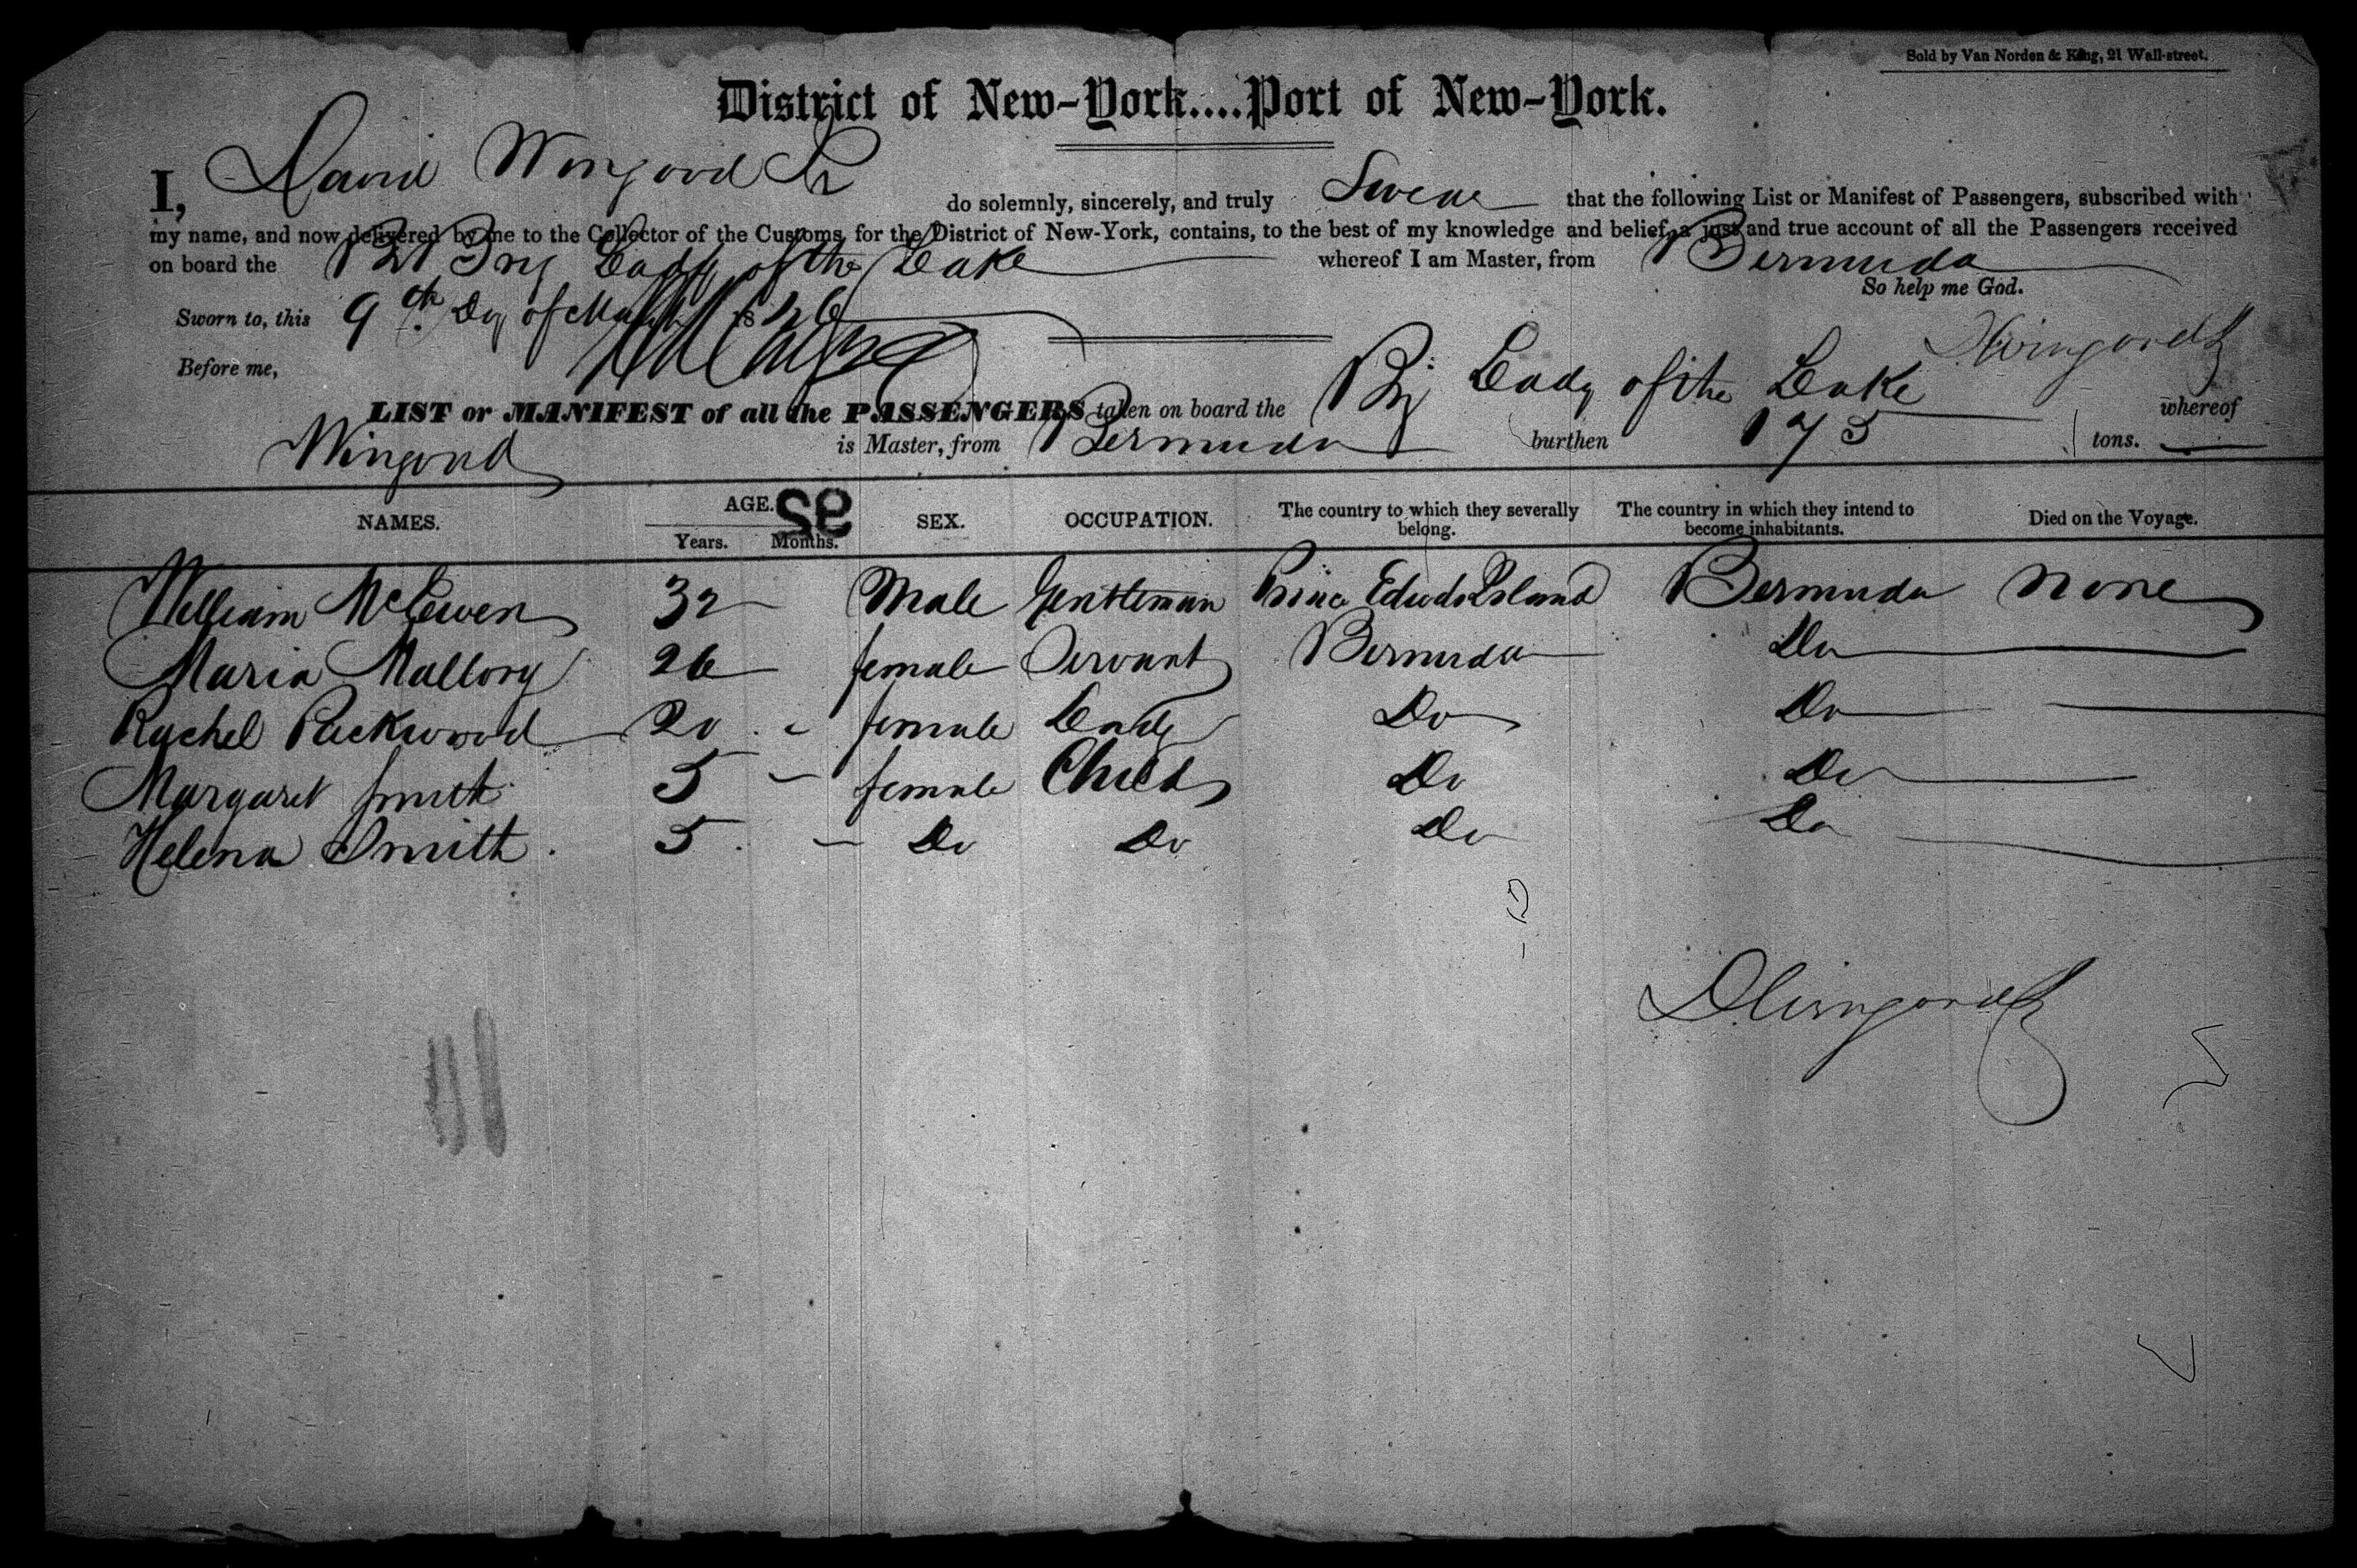 Sold by Van Norden & King, 21 Wall-street.
District of New-York....Port of New-York.
I, David Wingood Jr do solemnly, sincerely, and truly Swear that the following List or Manifest of Passengers, subscribed with
my name, and now delivered by me to the Collector of the Customs, for the District of New-York, contains, to the best of my knowledge and belief, a just and true account of all the Passengers received
on board the Brig Lady of the Lake whereof I am Master, from Bermuda
So help me God.
Sworn to, this 9th Day of 1826
DWingood Jr
Before me,
LIST or MANIFEST of all the PASSENGERS taken on board the Brig Lady of the Lake whereof
Wingood is Master, from Bermuda burthen 175 tons.
NAMES. AGE. 92 SEX. OCCUPATION. The country to which they severally belong. The country in which they intend to become inhabitants. Died on the Voyage.
Years. Months.
William McEwen 32 Male Gentleman Prince Edwds Island Bermuda None
Maria Mallory 26 female Servant Bermuda Do
Rachel Packwood 20 female Lady Do Do
Margaret Smith 5 female Child Do Do
Helena Smith. 5 Do Do Do Do
DWingood Jr